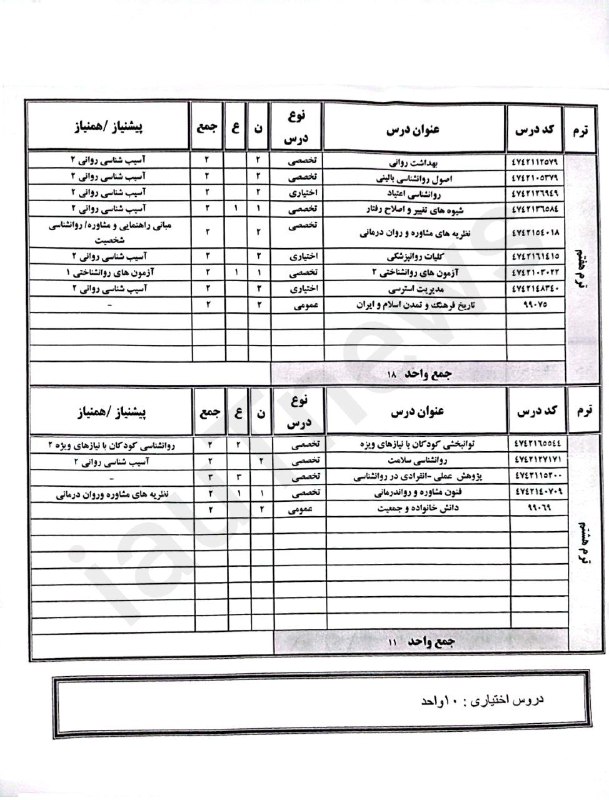 ترم کد درس عنوان درس نوع درس ن ع جمع پیشنیاز /همنیاز
ترم هفتم
۴۷۴۲۱۱۲۵۷۹ بهداشت روانی تخصصی ۲ ۲ آسیب شناسی روانی ۲
۴۷۴۲۱۰۵۳۷۹ اصول روانشناسی بالینی تخصصی ۲ ۲ آسیب شناسی روانی ۲
۴۷۴۲۱۲۶۹۴۹ روانشناسی اعتیاد اختیاری ۲ ۲ آسیب شناسی روانی ۲
۴۷۴۲۱۳۶۵۸۴ شیوه های تغییر و اصلاح رفتار تخصصی ۱ ۱ ۲ آسیب شناسی روانی ۲
۴۷۴۲۱۵۴۰۱۸ نظریه های مشاوره و روان درمانی تخصصی ۲ ۲ مبانی راهنمایی و مشاوره/ روانشناسی شخصیت
۴۷۴۲۱۶۱۴۱۵ کلیات روانپزشکی اختیاری ۲ ۲ آسیب شناسی روانی ۲
۴۷۴۲۱۰۳۰۲۲ آزمون های روانشناختی ۲ تخصصی ۱ ۱ ۲ آزمون های روانشناختی ۱
۴۷۴۲۱۴۸۳۴۰ مدیریت استرسی اختیاری ۲ ۲ آسیب شناسی روانی ۲
۹۹۰۷۵ تاریخ فرهنگ و تمدن اسلام و ایران عمومی ۲ ۲ -
جمع واحد ۱۸
ترم کد درس عنوان درس نوع درس ن ع جمع پیشنیاز /همنیاز
ترم هشتم
۴۷۴۲۱۶۵۵۴۴ توانبخشی کودکان با نیازهای ویژه تخصصی ۲ ۲ روانشناسی کودکان با نیازهای ویژه ۲
۴۷۴۲۱۲۷۱۷۱ روانشناسی سلامت تخصصی ۲ ۲ آسیب شناسی روانی ۲
۴۷۴۲۱۱۵۲۰۰ پژوهش عملی -انفرادی در روانشناسی تخصصی ۳ ۳ -
۴۷۴۲۱۴۰۷۰۹ فنون مشاوره و رواندرمانی تخصصی ۱ ۱ ۲ نظریه های مشاوره وروان درمانی
۹۹۰۶۹ دانش خانواده و جمعیت عمومی ۲ ۲
جمع واحد ۱۱
دروس اختیاری : ۱۰واحد
iauTnews